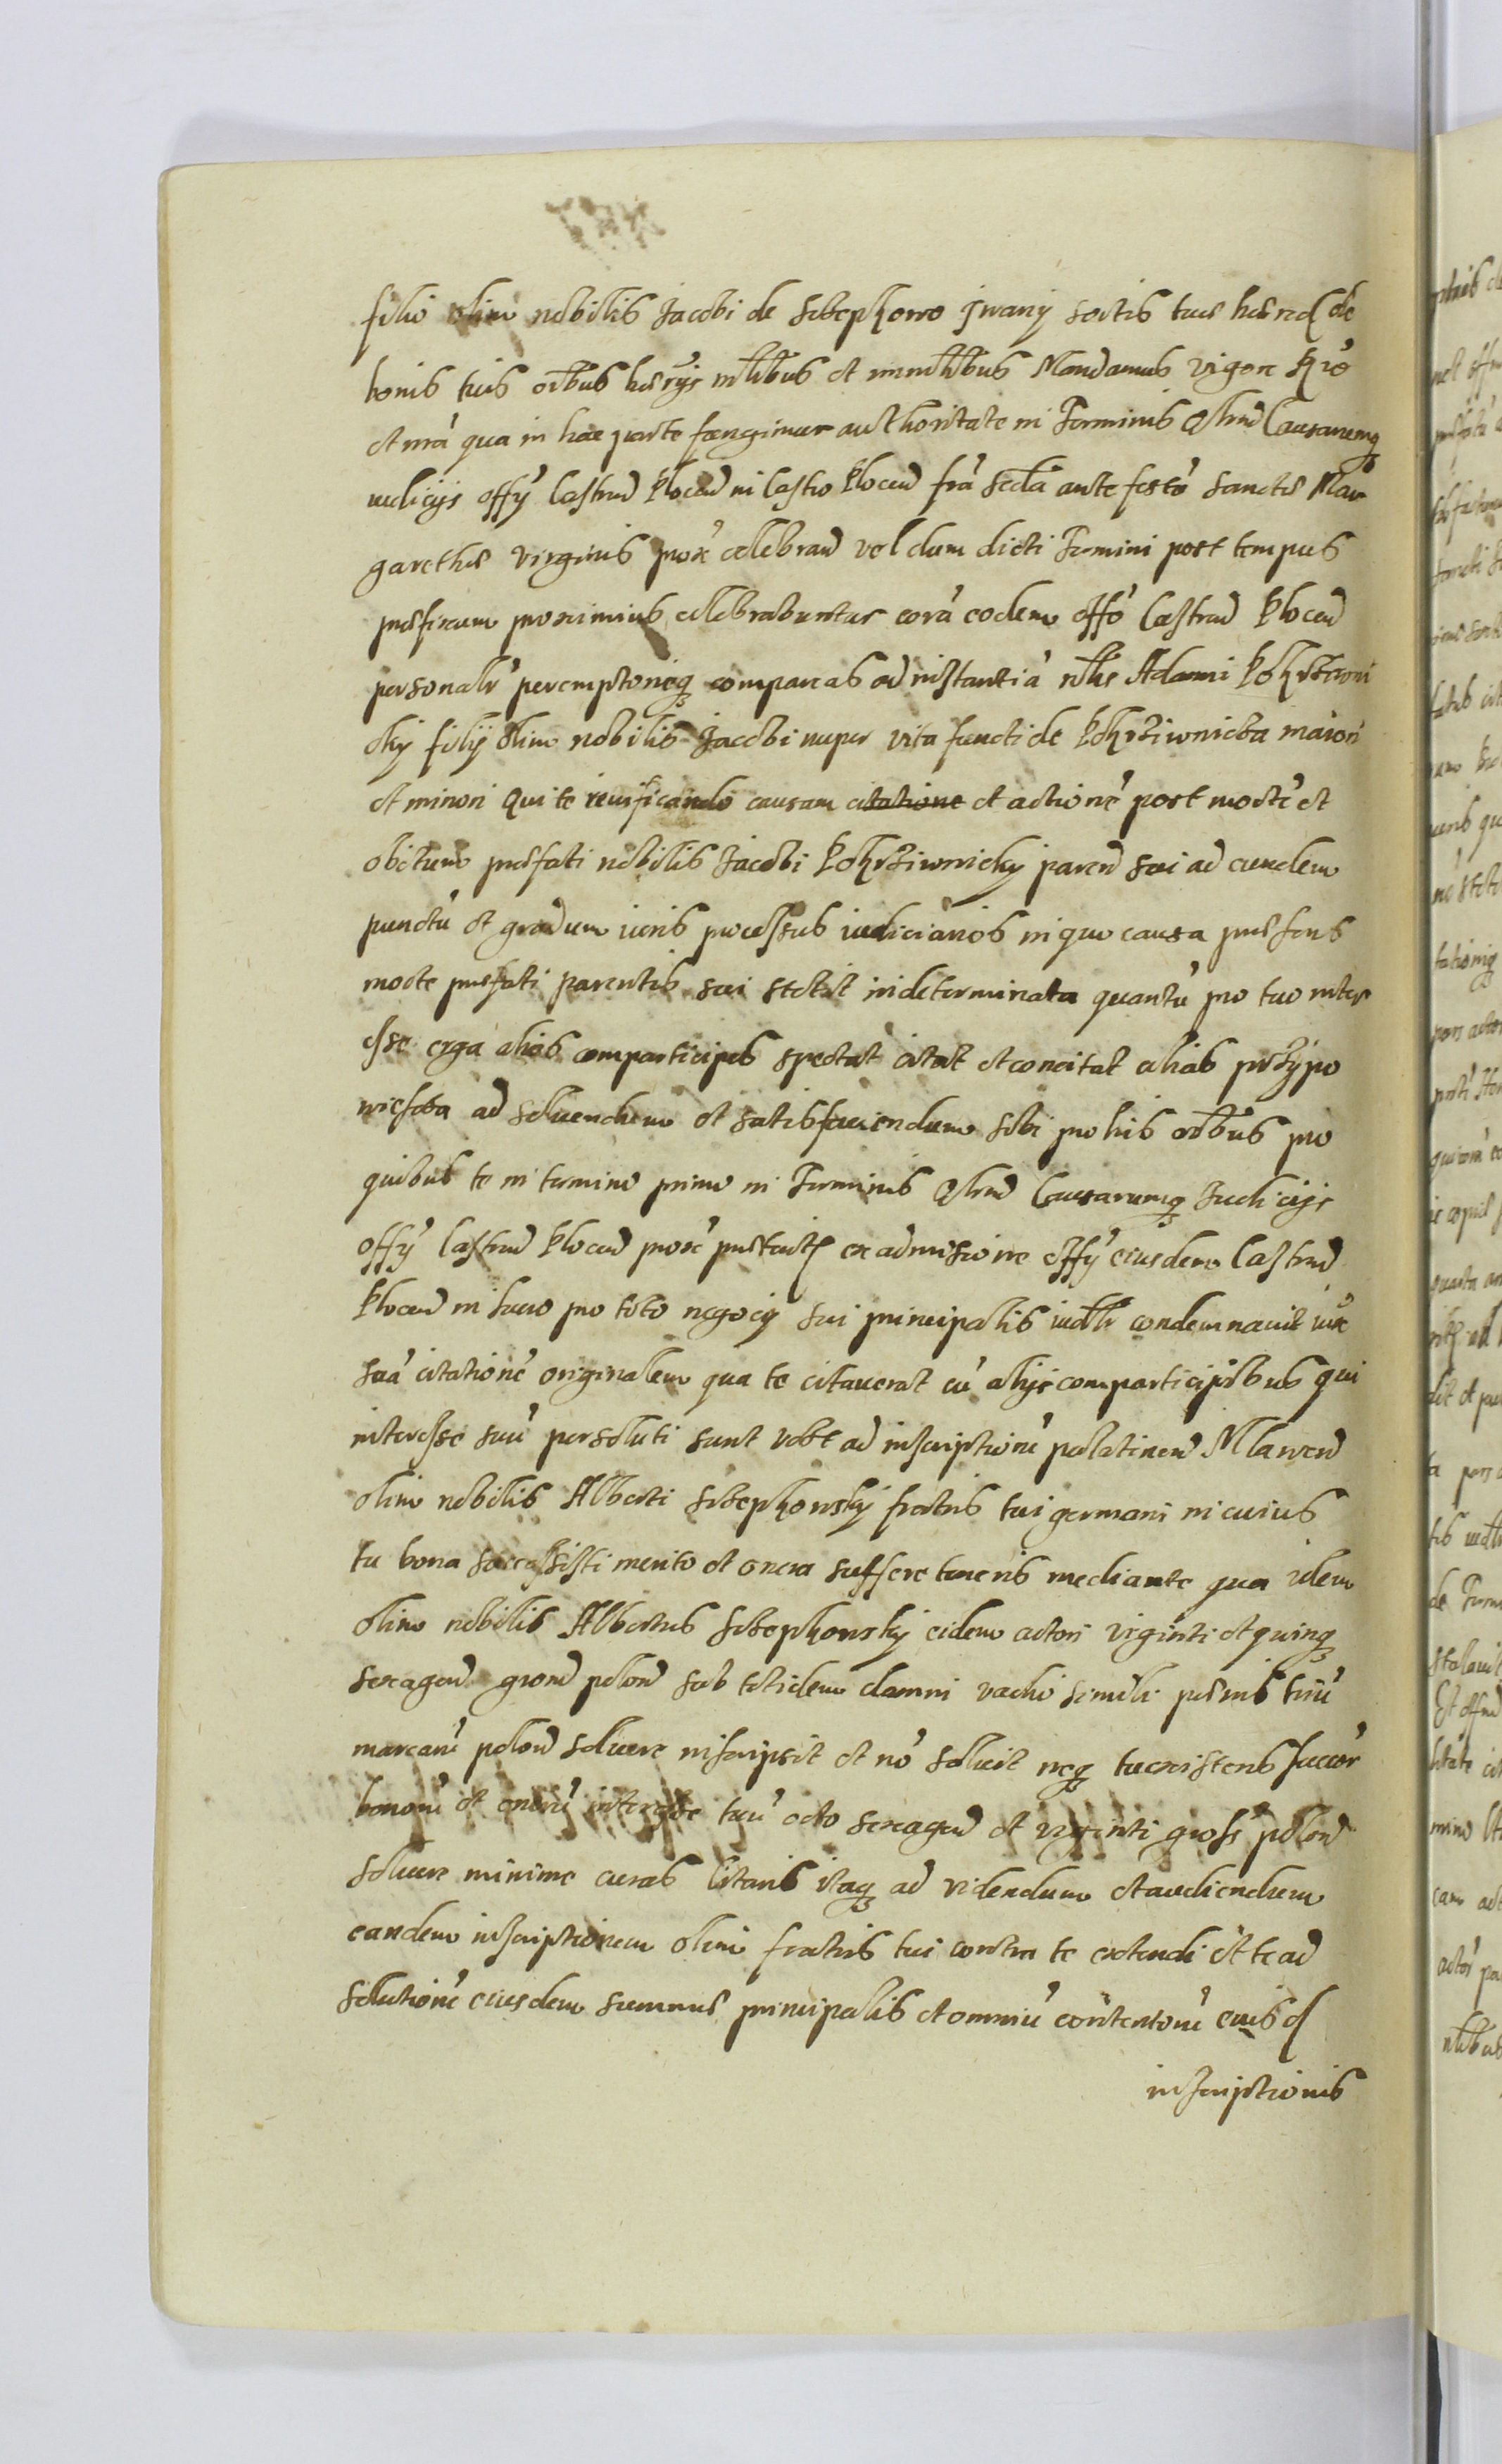 filio olim nobilis Jacobi de Sczephowo Jwany sortis tuæ hæred de
bonis tuis oībus hæryś mlibus et immlibus Mandamus vigore
et nrā qua in hac parte fungimur authoritate in Terminis Qhrud Causarumq
iudicijs offÿ Castrud Plocend in Castro Plocend frā scdā ante festū Sanctæ Mar
garethæ virginis prox celebrand vel dum dicti Termini post tempus
præfixum proximius celebrabuntur corā eodem offo Castrud Plocend
personalr peremptorieq compareas ad instantiā nblis Adami Pokrziwni
cky filij olim nobilis Jacobi nuper vita functi de Pokrziwnicza maiori
et minori Qui te reuificando causam citatione et actionē post mortē et
obitum præfati nobilis Jacobi Pokrziwnicky parend sui ad eundem
punctū et gradum iuris processus iudiciarios in quo causa præsens
morte præfati parentis sui stetit indeterminata quantū pro tuo inter
esse erga alios comparticipes spectat citat et concitat alias przypo
wiescza ad soluendum et satisfaciendum sibi pro his oībus pro
quibus te in termino primo in Terminis Qhrud Causarumq Judicijs
offÿ Castrud Plocend prox præterit ex admissione offÿ eiusdem Castrud
Plocend in lucro pro toto negocÿ sui principalis iudlr condemnauit iux
suā citationē originalem qua te citauerat cū alijs comparticipibus qui
interesse suū persoluti sunt vobc ad inscriptionē palatinend Mlawend
olim nobilis Alberti Sczephowsky fratris tui germani in cuius
tu bona successisti merito et onera sufferre teneris mediante qua idem
olim nobilis Albertus Sczephowsky eidem actori viginti et quinq
sexagend grond polond sub totidem damni vadio simili pænis triū
marcarū polond soluere inscripsit et nō soluit neq tu existens succor
bonorū et onerū interesse tuū octo sexagend et viginti gross polond
soluere minime curas Citaris itaq ad videndum et audiendum
eandem inscriptionem olim fratris tui contra te extendi Et te ad
solutionē eiusdem summæ principalis et omniū contentorū eiusd
inscriptionis